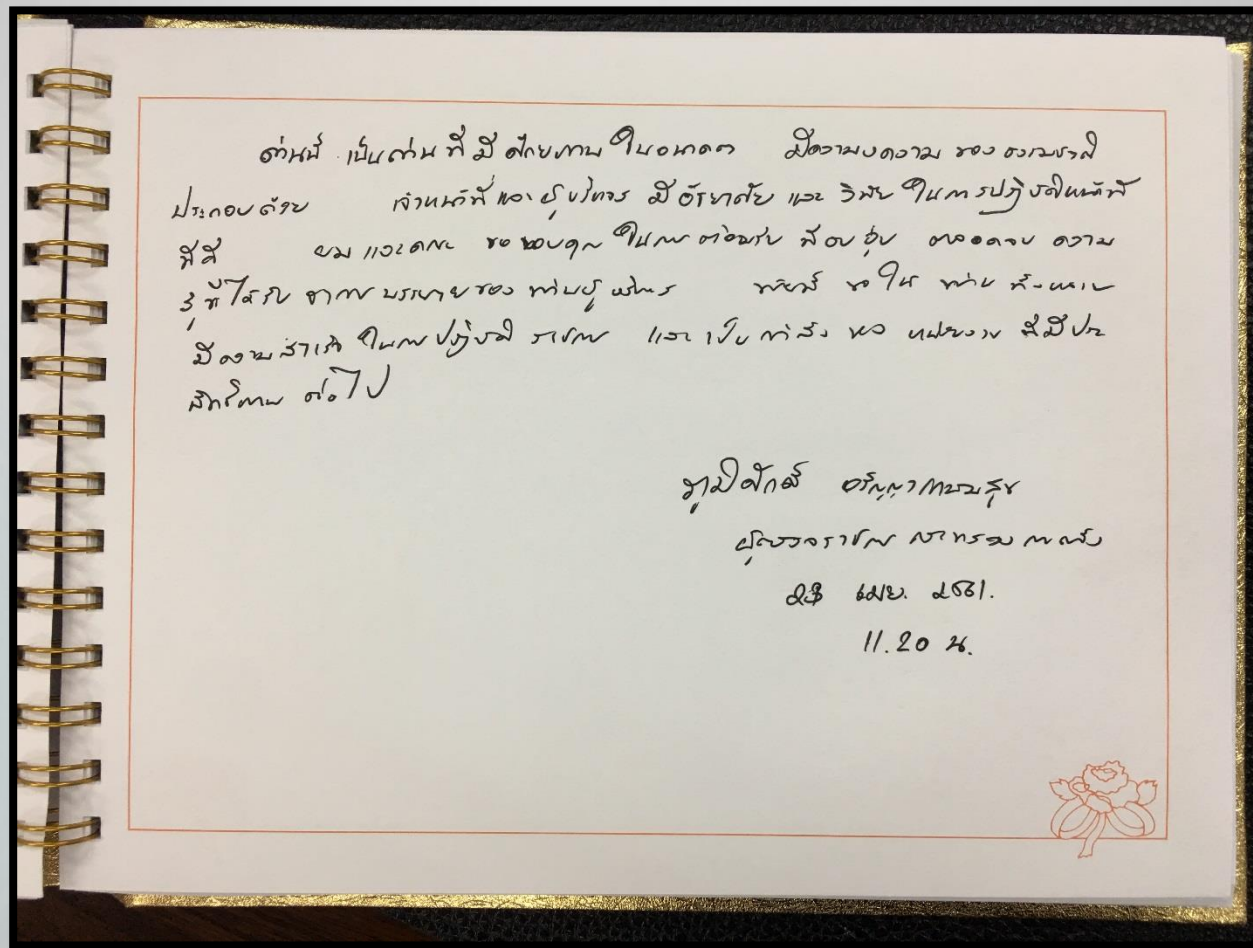 ด่านนี้ เป็นด่านที่มีศักยภาพในอนาคต มีความงดงามของธรรมชาติ
ประกอบด้วย เจ้าหน้าที่และผู้บริหาร มีอัธยาศัย และวินัยในการปฏิบัติหน้าที่
ที่ดี ผมและคณะ ขอขอบคุณในการต้อนรับที่อบอุ่น ตลอดจนความ
รู้ที่ได้รับจากการบรรยายของท่านผู้บริหาร ขอให้ท่านทั้งหลาย
มีความสำเร็จในการปฏิบัติราชการ และเป็นกำลังของหน่วยงานที่มีประ
สิทธิภาพต่อไป
ภูมิศักดิ์ อรัญญาเกษมสุข
ผู้ตรวจราชการกระทรวงการคลัง
23 เมย. 2561.
11.20 น.